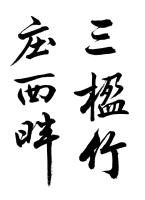 三楹竹
庄西畔